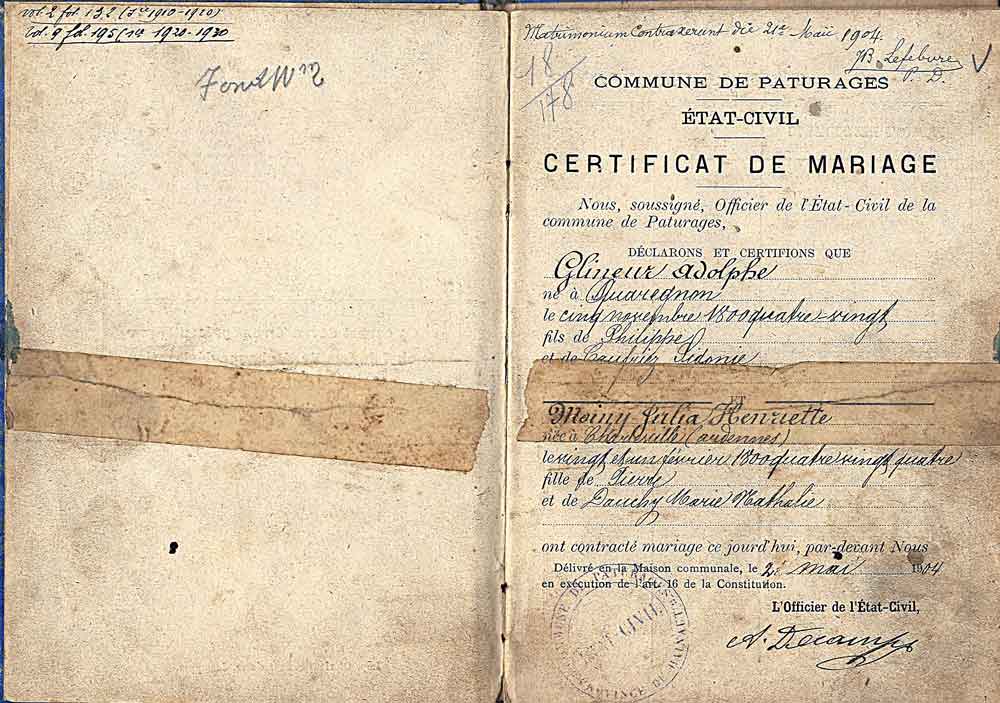 vol. 2 fol. 132 (1re 1910-1920)
Vol. 9 fol. 195 (1re 1920-1930
Matrimonium Contraxerunt die 21a Maii 1904.
JB. Lefebvre
P. D.
18
178
COMMUNE DE PATURAGES
ÉTAT-CIVIL
CERTIFICAT DE MARIAGE
Nous, soussigné, Officier de l'État-Civil de la
commune de Paturages,
DÉCLARONS ET CERTIFIONS QUE
Glineur Adolphe
né à Quaregnon
le cinq novembre 1800 quatre-vingt
fils de Philippe
et de Sidonie
ET
Moiny Julia Henriette
née à Charleville (ardennes)
le vingt et un février 1800 quatre vingt quatre
fille de Pierre
et de Dauchy Marie Nathalie
ont contracté mariage ce jourd'hui, par-devant Nous
Délivré en la Maison communale, le 2 mai 1904
en exécution de l'art. 16 de la Constitution.
L'Officier de l'État-Civil,
A. Decamps
ÉTAT-CIVIL